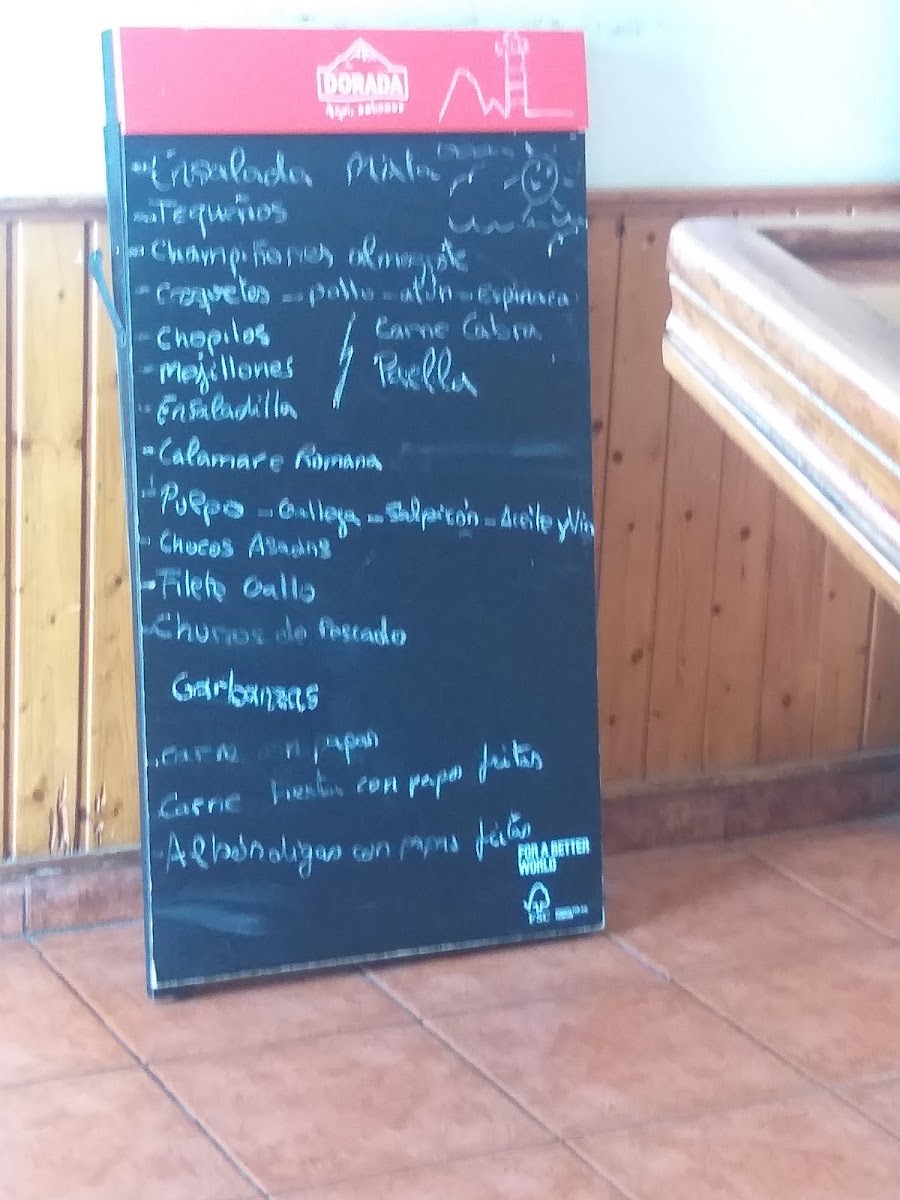 DORADA
- Ensalada Mixta
- Tequeños
- Champiñones almogote
- Croquetas - pollo - atún - espinaca
- Chopitos
Carne Cabra
- Mejillones
Paella
- Ensaladilla
- Calamare Romana
- Pulpo - Gallega - Salpicón - Aceite y Vin
- Chocos Asados
- Filete Gallo
- Churros de Pescado
Garbanzas
. carne con papas
. Carne Fiesta con papas fritas
- Albóndigas con papas fritas
FOR A BETTER
WORLD
FSC